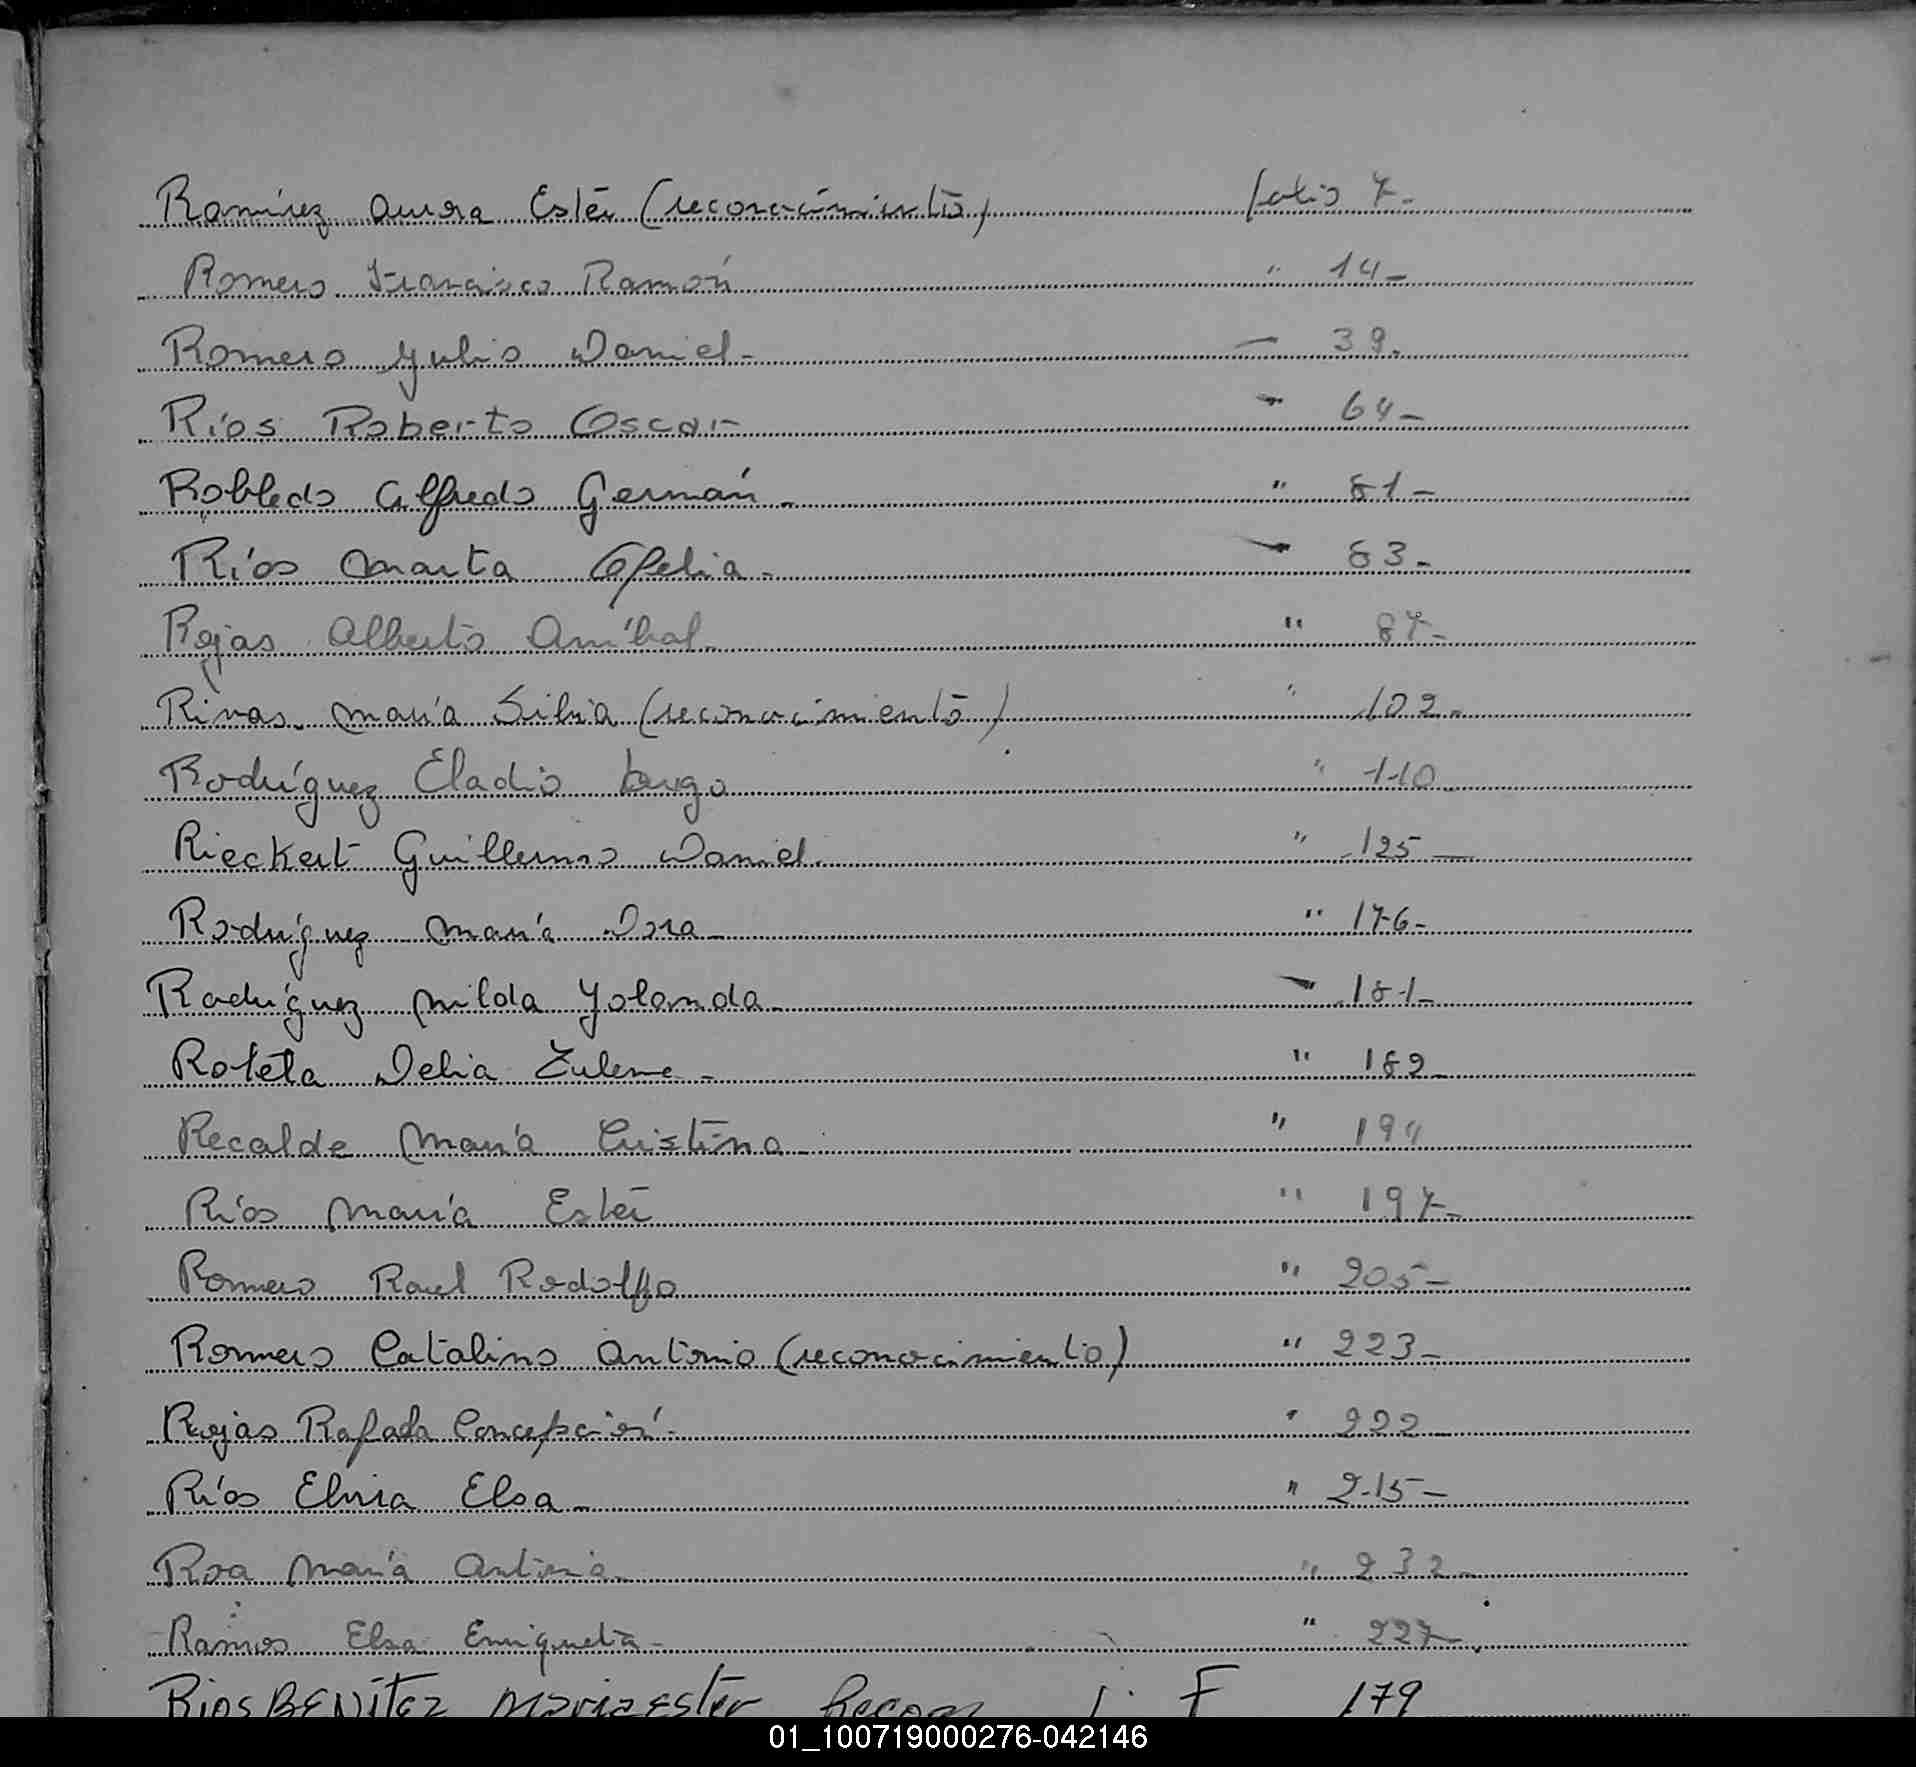 Ramírez Aurora Estér (reconocimiento) folio 7-
Romero Francisco Ramón " 14-
Romero Julio Daniel- — 39.
Ríos Roberto Oscar- " 64-
Robledo Alfredo Germán- " 81-
Ríos Marta Ofelia- " 83-
Rojas Alberto Aníbal- " 87-
Rivas María Silvia (reconocimiento) " 102-
Rodríguez Eladio Hugo " 110-
Rieckert Guillermo Daniel. " 125-
Rodríguez María Dora- " 176-
Rodríguez Milda Yolanda- " 181-
Roteta Delia Zulema- " 182-
Recalde María Cristina- " 194
Ríos María Estér " 197-
Romero Raul Rodolfo " 205-
Romero Catalino Antonio (reconocimiento) " 223-
Rojas Rafaela Concepción- " 222-
Ríos Elvira Elsa- " 215-
Roa María Antonia- " 232-
Ramos Elsa Enriqueta- " 227-
Rios BENÍTEZ María ESTER Recon F 179
01_100719000276-042146